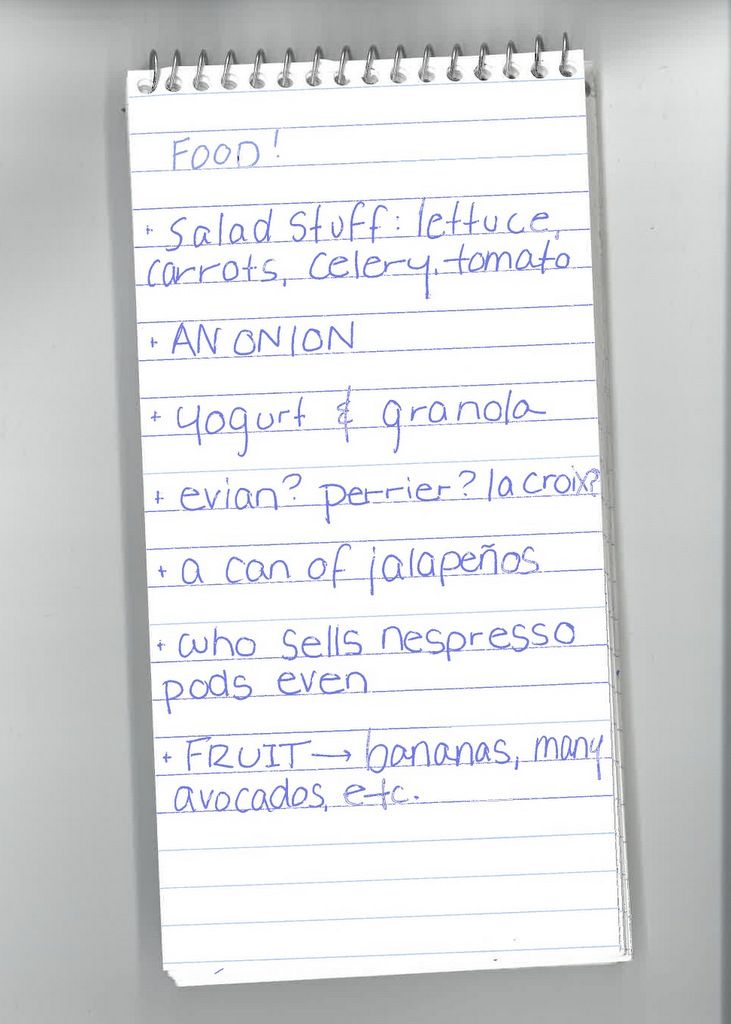 FOOD!
+ Salad Stuff: lettuce,
carrots, celery, tomato
+ AN ONION
+ yogurt & granola
+ evian? perrier? la croix?
+ a can of jalapeños
+ who sells nespresso
pods even
+ FRUIT → bananas, many
avocados, etc.